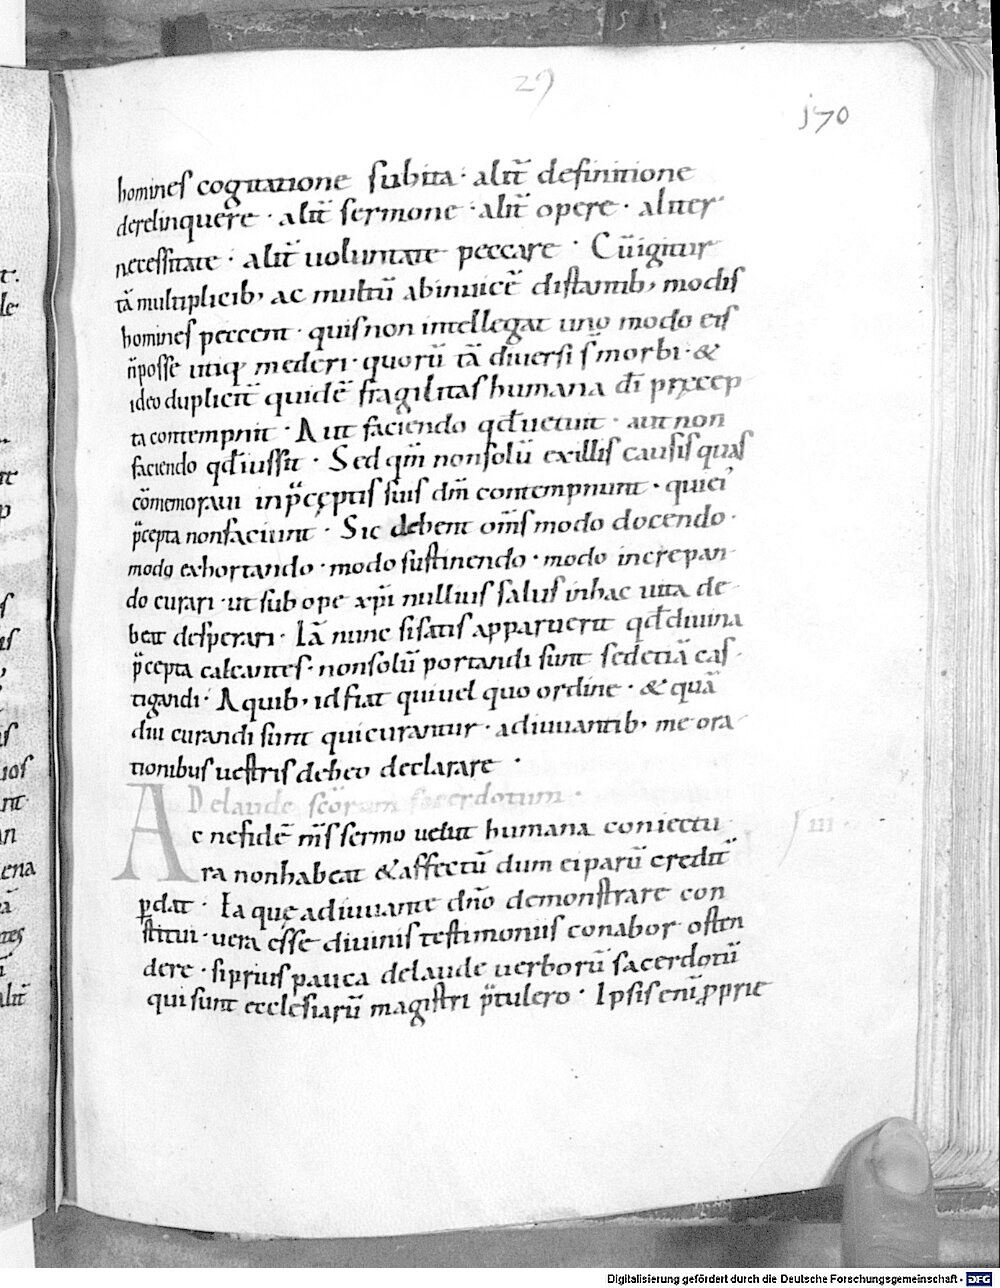 29
170
homines cogitatione subita · alit̄ definitione
derelinquere · alit̄ sermone · alit̄ opere · aliter
necessitate · alit̄ uoluntate peccare · Cū igitur
tā multiplicib; ac multū abinuicē distantib; modis
homines peccent · quis non intellegat uno modo eis
n̄ posse utiq; mederi · quorū tā diuersi s̄ morbi · &
ideo dupliciť quidē fragilitas humana dī precep
ta contempnit · Aut faciendo qđ uetuit · aut non
faciendo qđ iussit · Sed qm̄ non solū ex illis causis quas
cōmemoraui in p̄ceptis suis dm̄ contempnunt · qui ei'
p̄cepta non faciunt · Sic debent om̄s modo docendo ·
modo exhortando · modo sustinendo · modo increpan
do curari · ut sub ope xp̄i nullius salus in hac uita de
beat desperari · Iā nunc si satis apparuerit qđ diuina
p̄cepta calcantes · non solū portandi sunt sed etiā cas
tigandi · A quib; id fiat qui uel quo ordine · & quā
diu curandi sunt qui curantur · adiuuantib; me ora
tionibus uestris debeo declarare ·
De laude scōrum sacerdotum ·
Ac ne fidē m̄s sermo uelut humana coniectu
ra non habeat & affectū dum ei parū credit̄
p̄dat · Ea quę adiuuante dn̄o demonstrare con
stitui · uera esse diuinis testimoniis conabor osten
dere · si prius pauca de laude uerborū sacerdotū
qui sunt ecclesiarū magistri p̄tulero · Ipsis eni̅ ꝓprie
iii ·
Digitalisierung gefördert durch die Deutsche Forschungsgemeinschaft - DFG